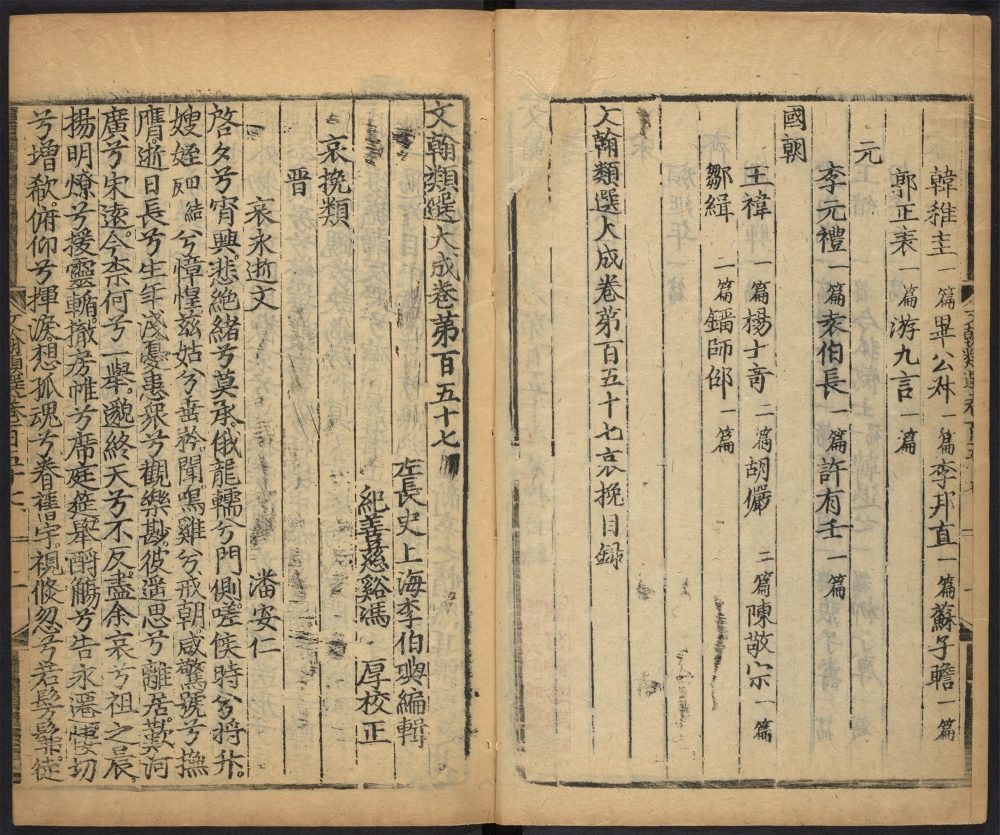 韓稚圭一篇畢公叔一篇李邦直一篇蘇子瞻一篇
郭正表一篇游九言一篇
元
李元禮一篇袁伯長一篇許有壬一篇
國朝
王褘一篇楊士奇二篇胡儼二篇陳敬宗一篇
鄒緝一篇鎦師邵一篇
文翰類選大成卷第百五十七哀挽目錄
文翰類選大成卷第百五十七
左長史上海李伯璵編輯
紀善慈谿馮厚校正
哀挽類
晉
哀永逝文 潘安仁
啓夕兮宵興悲絶緒兮莫承俄龍轜兮門側嗟俟時兮將升
嫂姪兮慞惶慈姑兮垂矜聞鳴雞兮戒朝咸驚號兮撫
膺逝日長兮生年淺憂患衆兮歡樂尠彼遥思兮離居歎河
廣兮宋遠今柰何兮一舉邈終天兮不反盡余哀兮祖之晨
揚明燎兮援靈輴撤房帷兮席庭筵舉酹觴兮告永遷悽切
兮增欷俯仰兮揮淚想孤魂兮眷舊宇視倏忽兮若髣髴徒